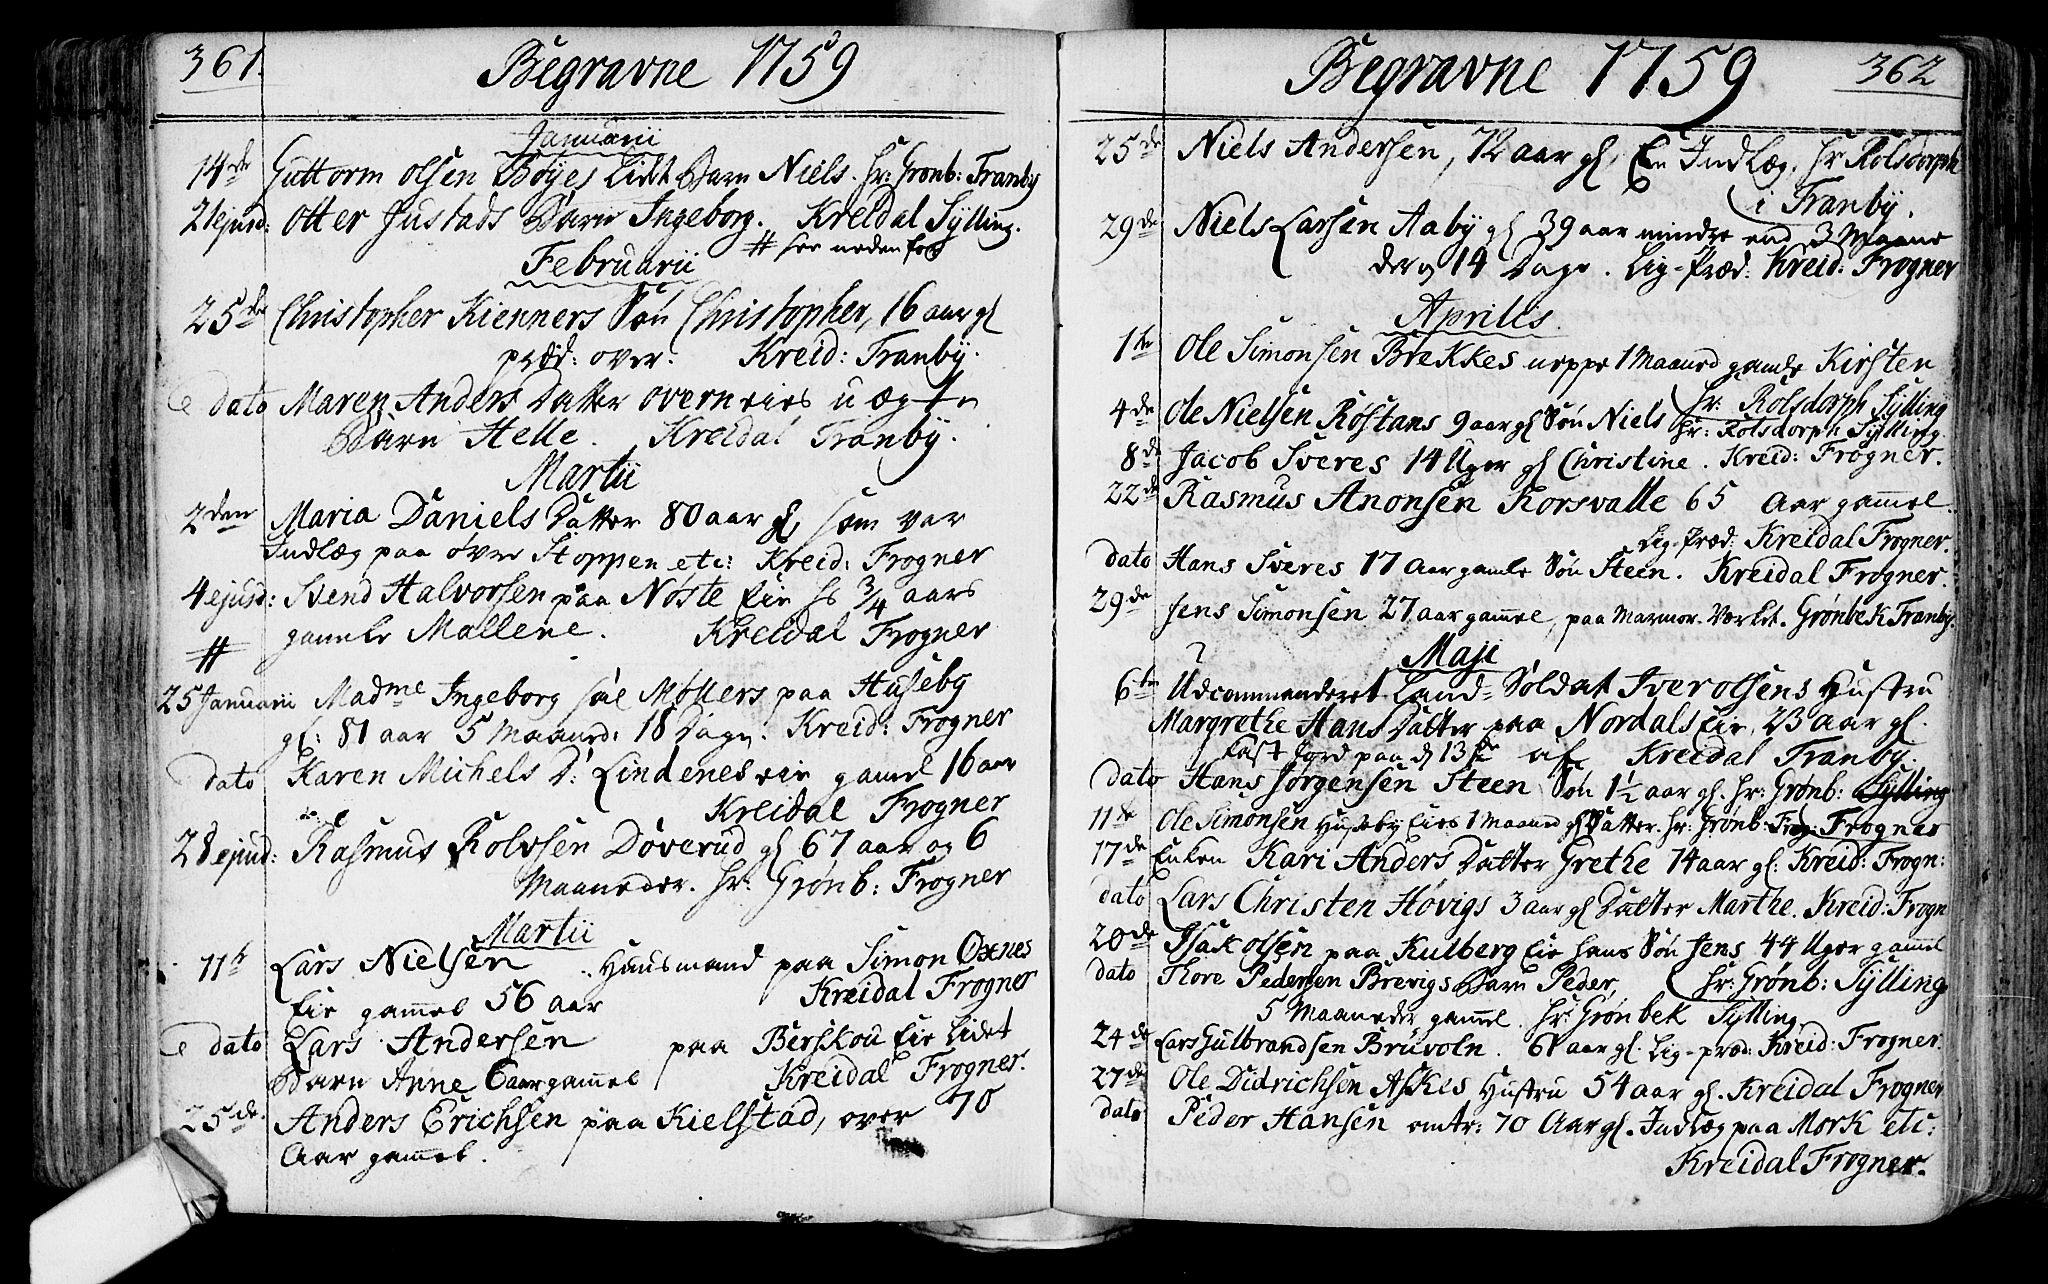 361.
Begravne 1759
Januarii
14de Guttorm Olsen Bøyes lidt Barn Niels. Hr: Grønb: Tranby
21 ejusd: Otter Justads Barn Ingeborg. Kreidal Sylling.
# see neden for
Februarii
25de Christopher Kienners Søn Christopher, 16 aar gl
præd: over. Kreid: Tranby.
dato Maren Anders Datter overneies uægte
Barn Helle. Kreidal Tranby.
Martii
2den Maria Daniels Datter 80 aar gl, som var
Indlæg paa øvre Stoppen etc: Kreid: Frogner
4 ejusd: Svend Halvorsen paa Nøste Eie hs 3/4 aars
gamle Mallene. Kreidal Frogner
#
25 Januarii Madme Ingeborg sal Møllers paa Huseby
gl: 81 aar 5 Maaned: 18 Dage. Kreid: Frogner
dato Karen Michels D: Lindenes eie gamel 16 aar
Kreidal Frogner
28 ejusd: Rasmus Rolvsen Døverud gl 67 aar og 6
Maaneder. Hr: Grønb: Frogner
Martii
11te Lars Nielsen Huusmand paa Simon Oxnes
Eie gammel 56 aar Kreidal Frogner
dato Lars Andersen paa Berskou Eie lidet
Barn Anne 6 aar gammel Kreidal Frogner.
25de. Anders Erichsen paa Kielstad, over 70
Aar gammel.
Begravne 1759
362
25de Niels Andersen, 72 aar gl, En Indlæg. Hr Rolsdorph
i Tranby.
29de Niels Larsen Aaby gl 39 aar mindre end 3 Maane
der og 14 Dage. Lig-Præd: Kreid: Frogner
Aprilis
1te Ole Simonsen Brekkes neppe 1 Maaned gamle Kirsten
Hr: Rolsdorph Sylling
4de Ole Nielsen Rostans 9 aar gl Søn Niels Hr: Rolsdorph Sylling.
8de Jacob Sveres 14 Uger gl Christine. Kreid: Frogner.
22de Rasmus Anonsen Korsvalle 65 Aar gammel.
Lig-Præd: Kreidal Frogner.
dato Hans Sveres 17 Aar gamle Søn Steen. Kreidal Frogner.
29de Jens Simonsen 27 aar gammel, paa Marmor-Værket. Grønbek Tranby.
Maji
6te Udcommanderet Land-Soldat Iver Olsens Hustru
Margrethe Hans Datter paa Nordals Eie, 23 aar gl.
Cast Jord paa d 13de af Kreidal Tranby.
dato Hans Jørgensen Steen Søn 1½ aar gl. Hr: Grønb: Sylling
11te Ole Simonsen Huseby Eies 1 Maaned gl Datter. Hr: Grønb: Frogner
17de Enken Kari Anders Datter Grethe 74 aar gl: Kreid: Frogn:
dato Lars Christen Høvigs 3 aar gl Datter Marthe. Kreid: Frogn
20de Isak Olsen paa Kulberg Eie hans Søn Jens 44 Uger gammel
Hr: Grønb: Sylling
dato Thore Pedersen Brevigs Barn Peder,
5 Maaneder gammel. Hr: Grønbek Sylling
24de Lars Gulbrandsen Bruvoln. 61 aar gl. Lig-præd: Kreid: Frogner.
27de Ole Didrichsen Askes Hustru 54 aar gl. Kreidal Frogner
dato Peder Hansen omtr: 70 Aar gl. Indlæg paa Mork etc:
Kreidal Frogner.